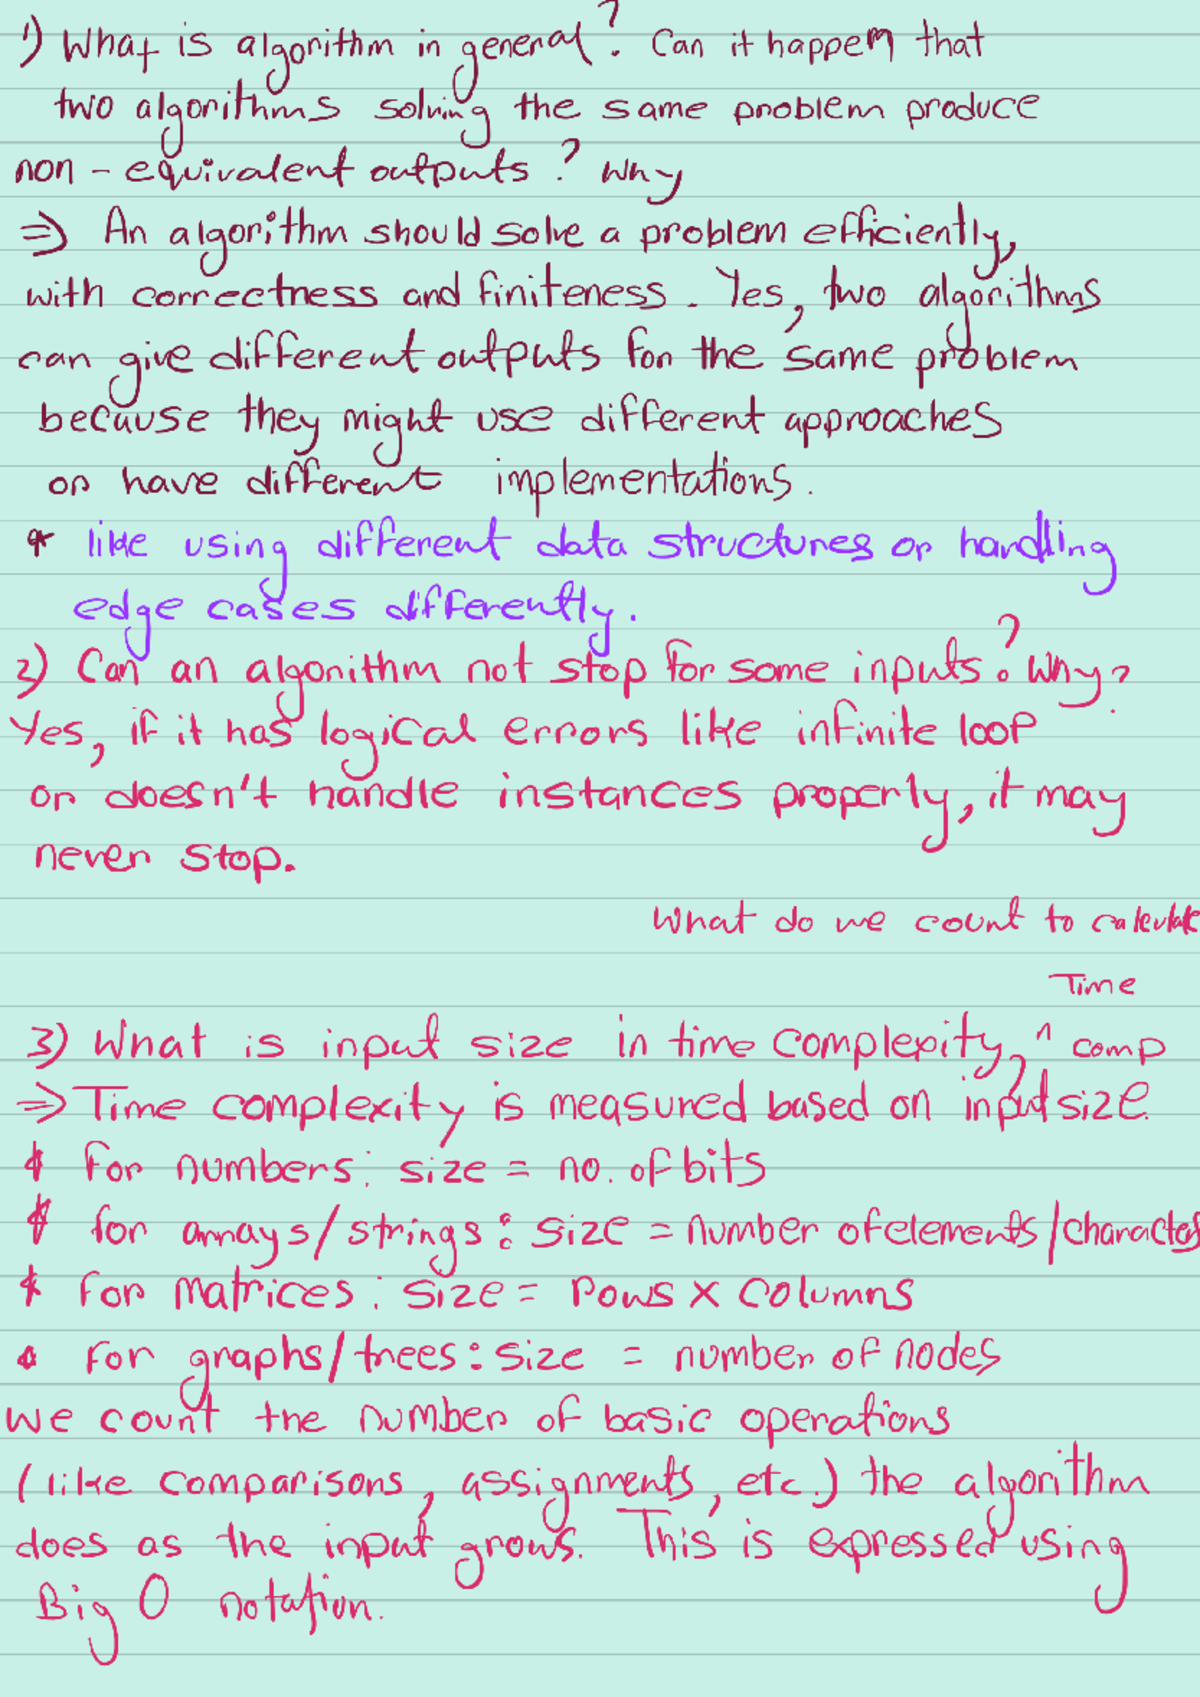 1) What is algorithm in general? Can it happen that
two algorithms solving the same problem produce
non - equivalent outputs? Why
⇒ An algorithm should solve a problem efficiently,
with correctness and finiteness. Yes, two algorithms
can give different outputs for the same problem
because they might use different approaches
or have different implementations.
* like using different data structures or handling
edge cases differently.
2) Can an algorithm not stop for some inputs? Why?
Yes, if it has logical errors like infinite loop
or doesn't handle instances properly, it may
never stop.
What do we count to calculate
Time
3) What is input size in time complexity,? ^ comp
⇒ Time complexity is measured based on input size.
* for numbers: size = no. of bits
* for arrays/strings: size = number of elements/characters
* for matrices: size = rows x columns
* for graphs/trees: size = number of nodes
we count the number of basic operations
(like comparisons, assignments, etc.) the algorithm
does as the input grows. This is expressed using
Big O notation.